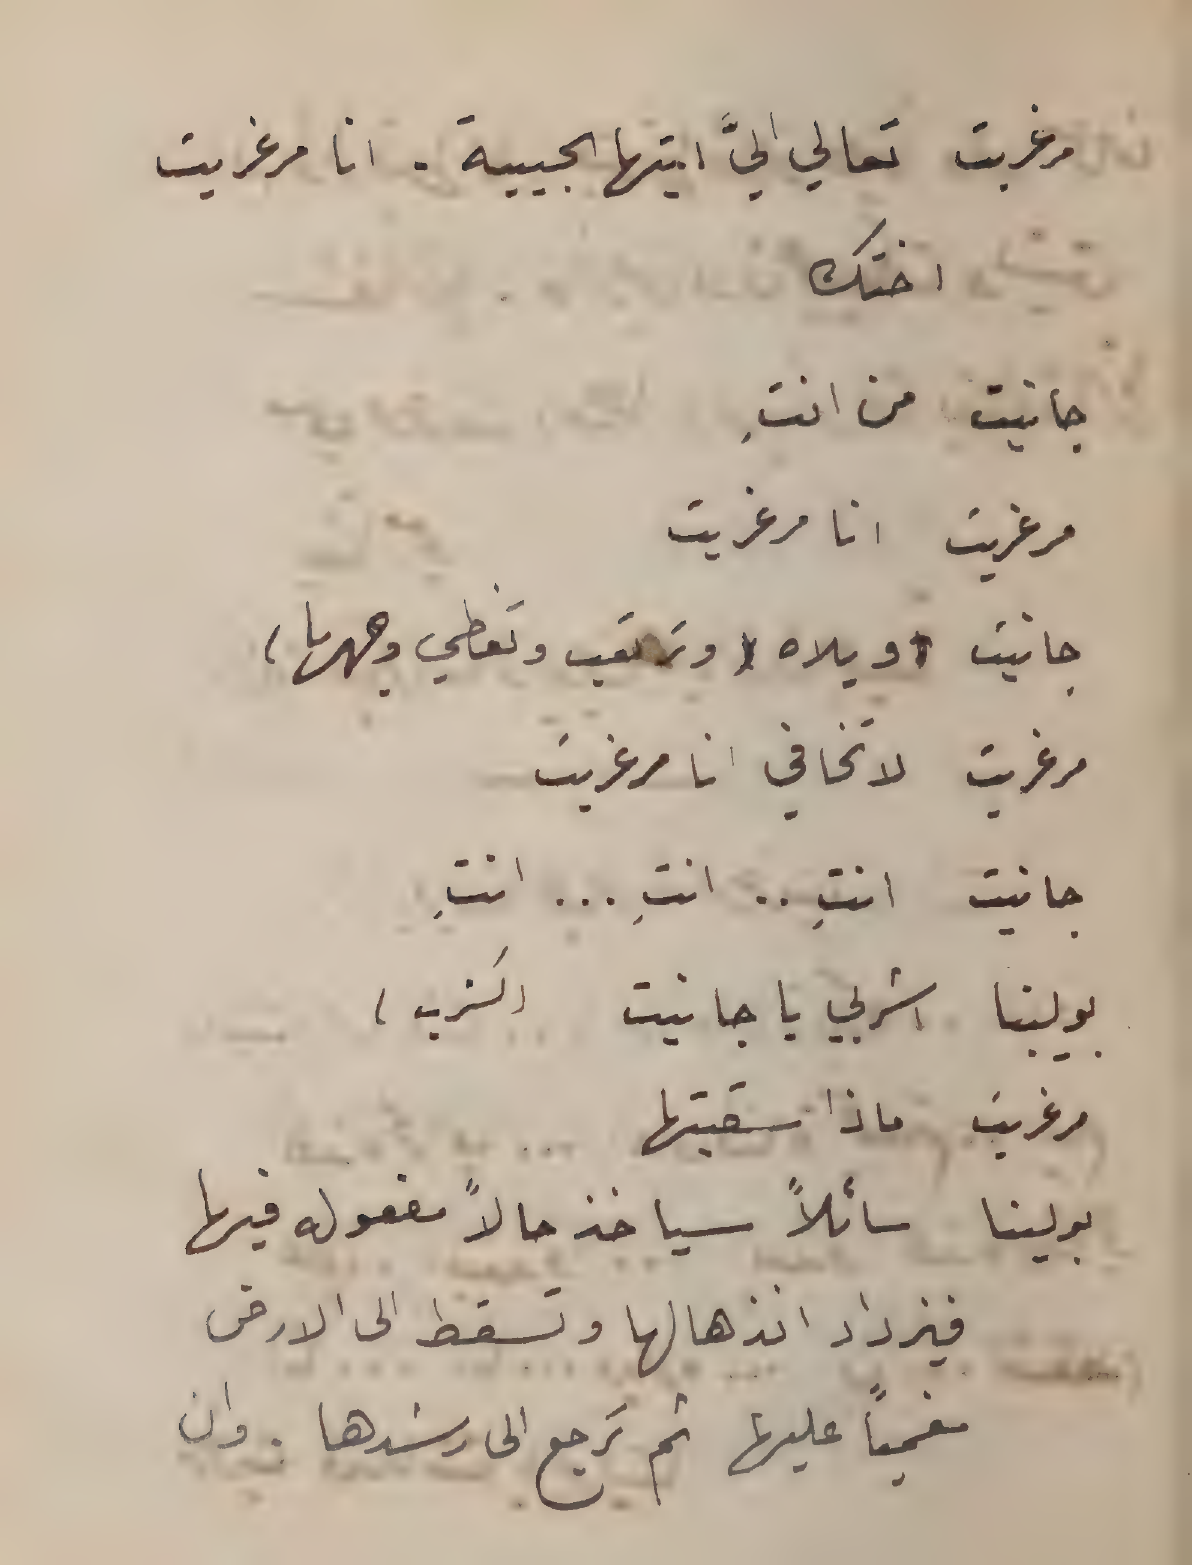 مرغريت تعالي اليَّ ايتها الحبيبة . انا مرغريت
اختك
جانيت من انتِ
مرغريت انا مرغريت
جانيت ( ويلاه ) وترتعب وتغطي وجهها )
مرغريت لا تخافي انا مرغريت
جانيت انتِ .. انتِ ... انتِ
بولينا اشربي يا جانيت (تشرب)
مرغريت ماذا سقيتها
بولينا سائلاً سيأخذ حالاً مفعوله فيها
فيزداد انذهالها وتسقط الى الارض
مغمياً عليها ثم ترجع الى رشدها . وان